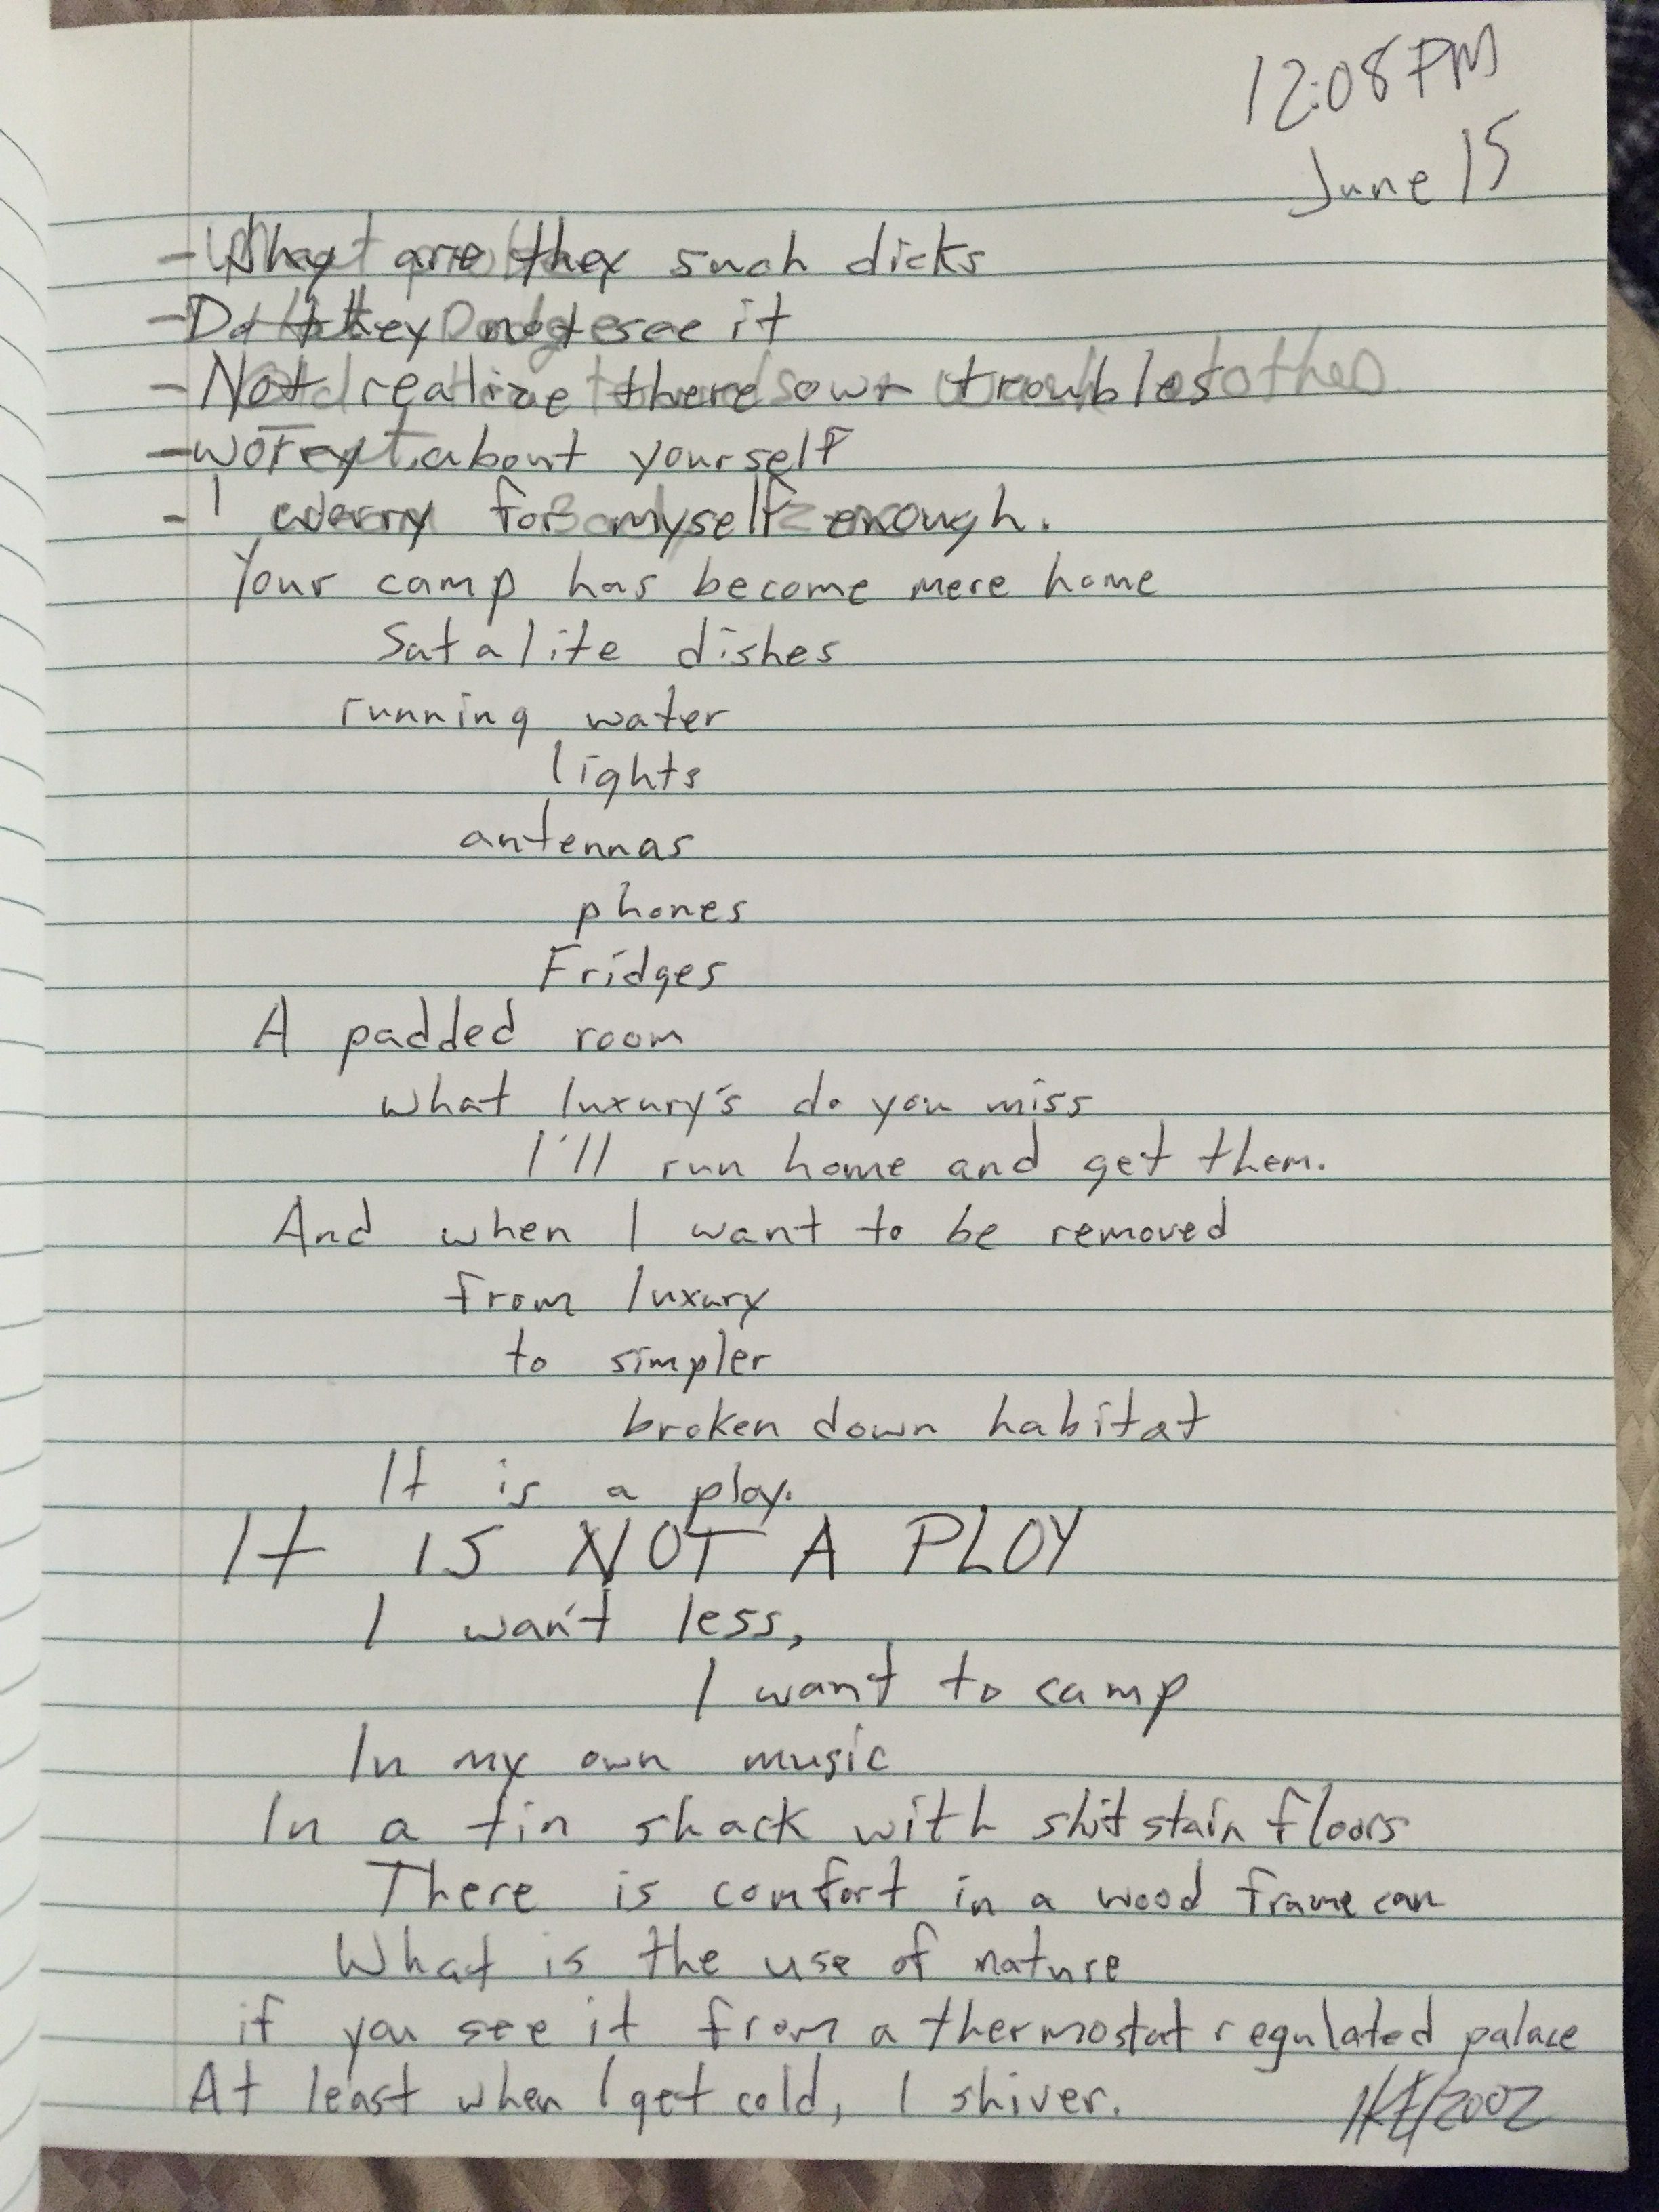 12:08 PM
June 15
- Why are they such dicks
- Do they not see it
- Not realize there own troubles
- worry about yourself
- I worry for myself enough.
Your camp has become mere home
Satalite dishes
running water
lights
antennas
phones
Fridges
A padded room
what luxury's do you miss
I'll run home and get them.
And when I want to be removed
from luxury
to simpler
broken down habitat
It is a ploy.
It IS NOT A PLOY
I wan't less,
I want to camp
In my own music
In a tin shack with shit stain floors
There is comfort in a wood frame can
What is the use of nature
if you see it from a thermostat regulated palace
At least when I get cold, I shiver.
/2002